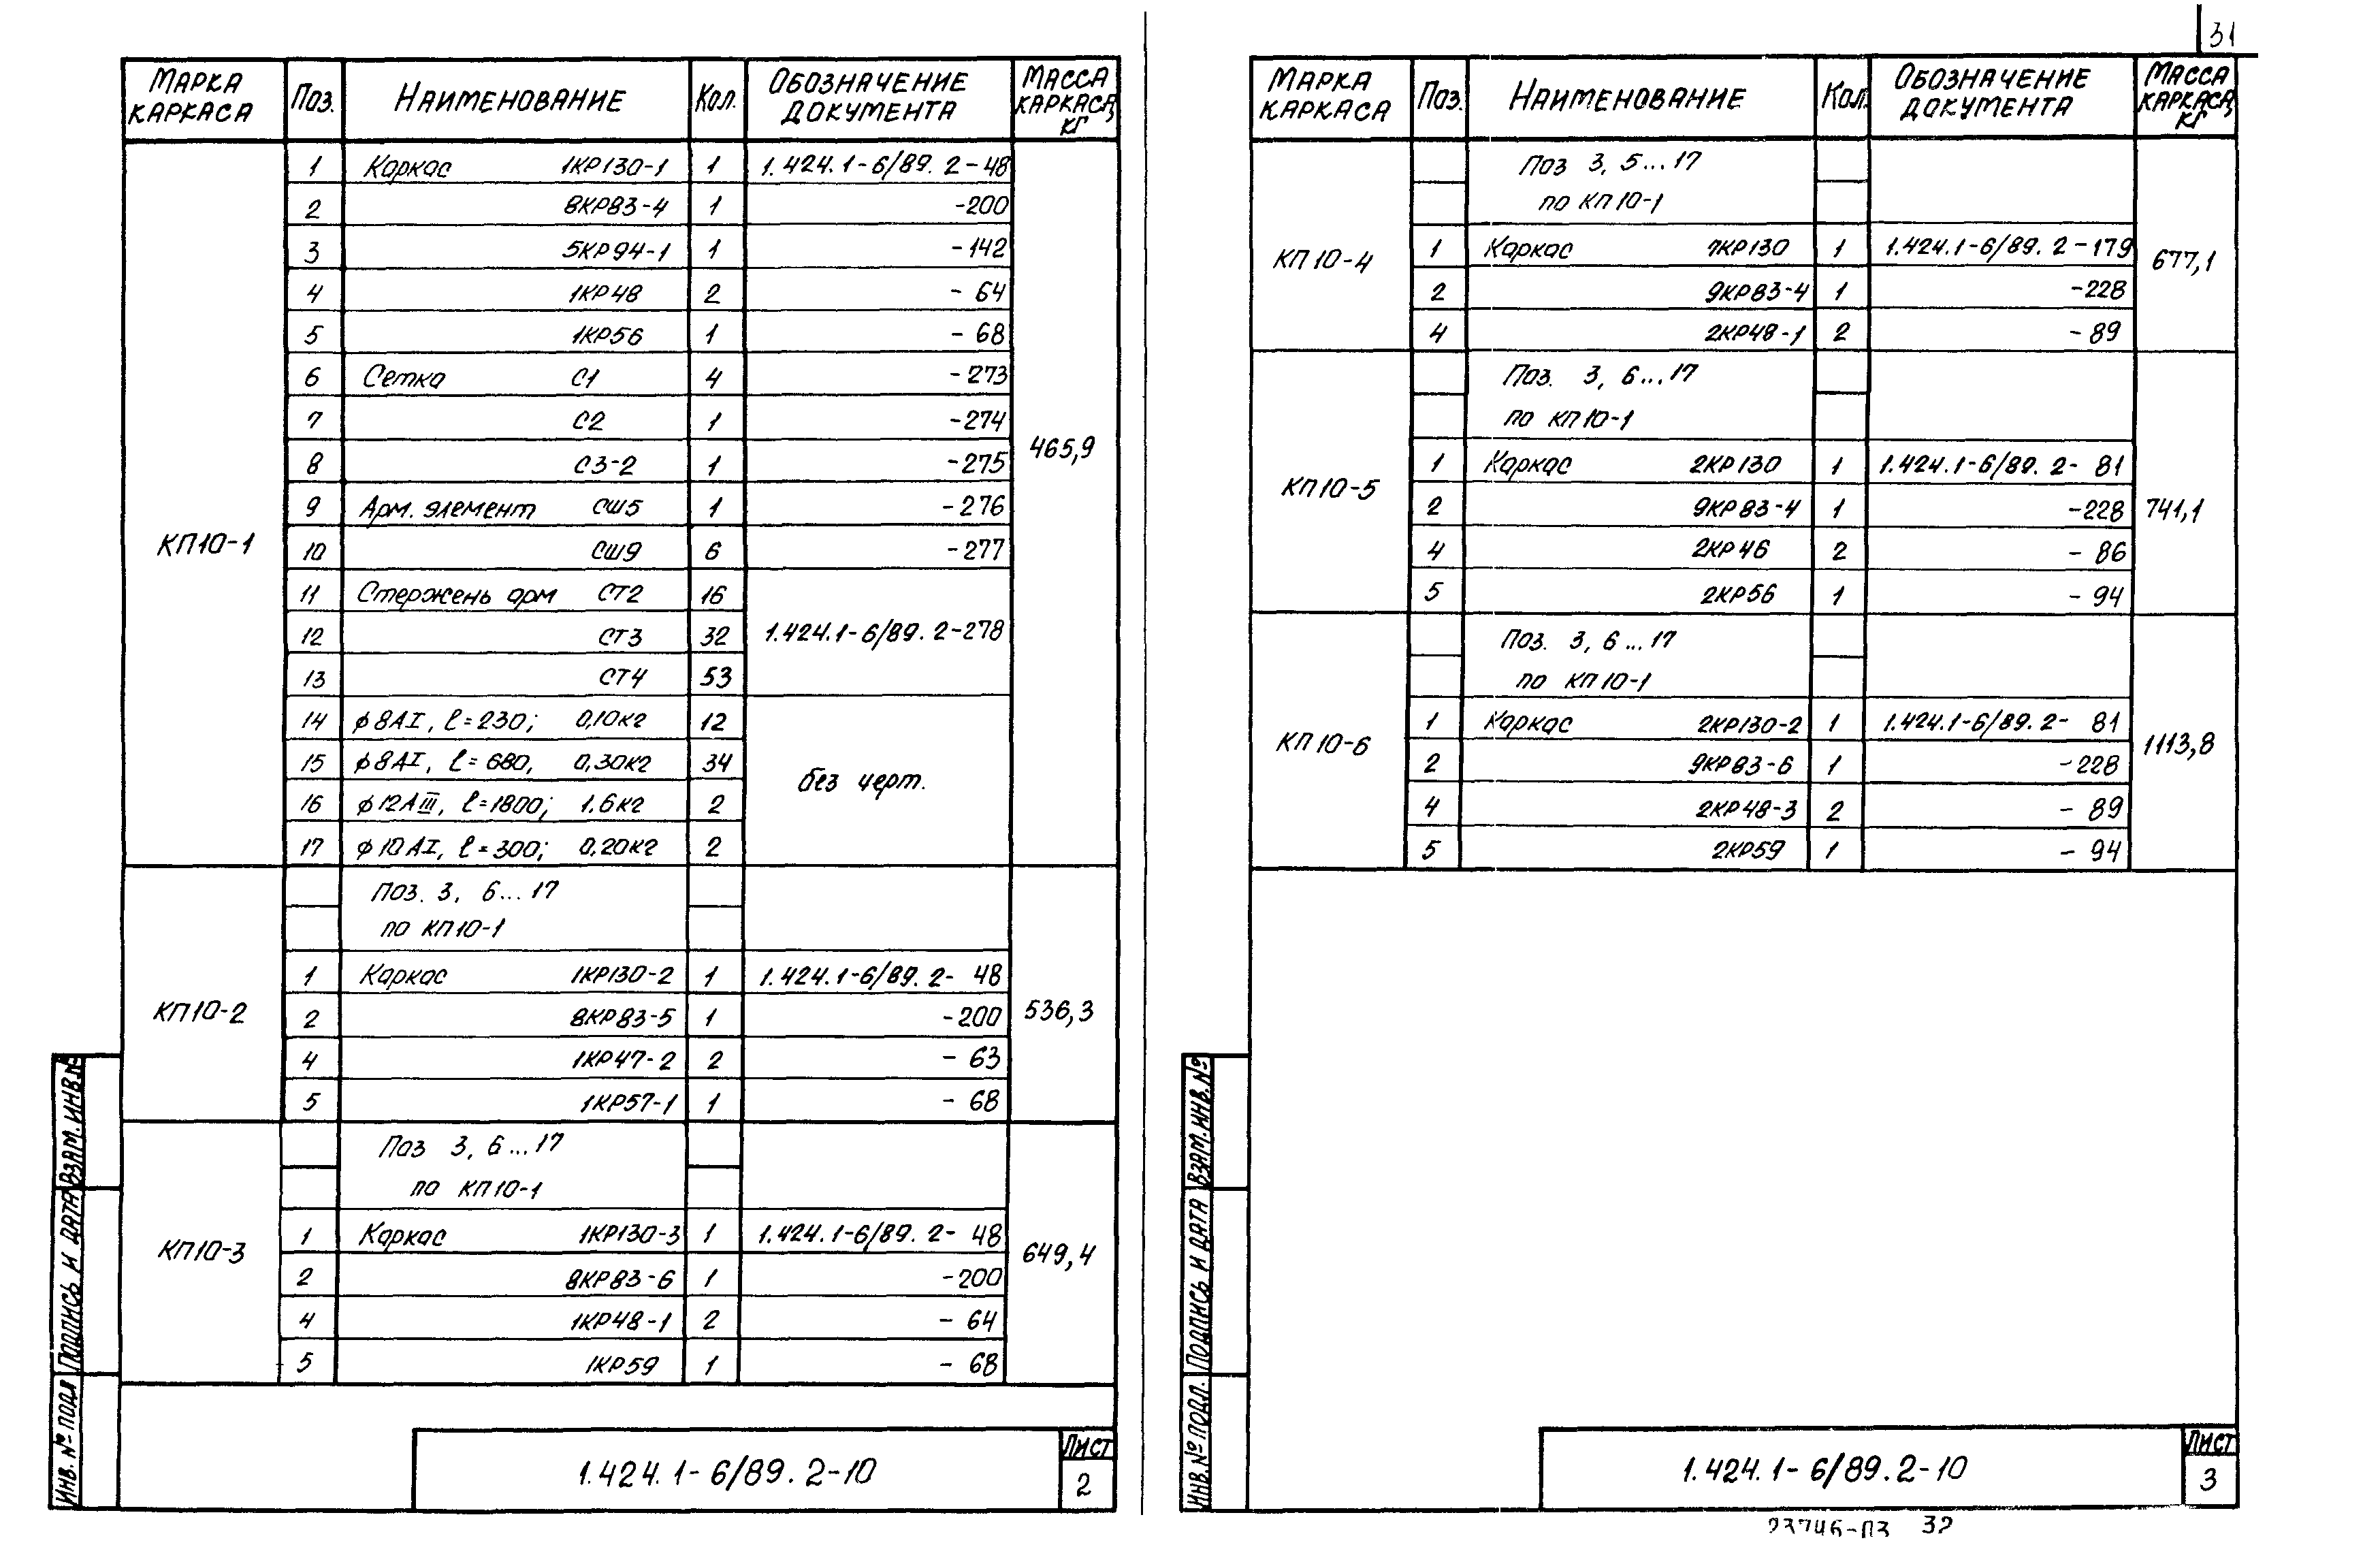 31
МАРКА КАРКАСА Поз. НАИМЕНОВАНИЕ Кол. ОБОЗНАЧЕНИЕ ДОКУМЕНТА МАССА КАРКАСА, КГ
КП10-1 465,9
1 Каркас 1КР130-1 1 1.424.1-6/89.2-48
2 8КР83-4 1 -200
3 5КР94-1 1 -142
4 1КР48 2 - 64
5 1КР56 1 - 68
6 Сетка С1 4 -273
7 С2 1 -274
8 С3-2 1 -275
9 Арм. элемент СШ5 1 -276
10 СШ9 6 -277
11 Стержень арм СТ2 16
12 СТ3 32 1.424.1-6/89.2-278
13 СТ4 53
14 ϕ8АI, ℓ=230; 0,10кг 12
15 ϕ8АI, ℓ=680, 0,30кг 34 без черт.
16 ϕ12АIII, ℓ=1800; 1.6кг 2
17 ϕ10АI, ℓ=300; 0,20кг 2
КП10-2 536,3
Поз. 3, 6...17
по КП10-1
1 Каркас 1КР130-2 1 1.424.1-6/89.2- 48
2 8КР83-5 1 -200
4 1КР47-2 2 - 63
5 1КР57-1 1 - 68
КП10-3 649,4
Поз 3, 6...17
по КП10-1
1 Каркас 1КР130-3 1 1.424.1-6/89.2- 48
2 8КР83-6 1 -200
4 1КР48-1 2 - 64
5 1КР59 1 - 68
1.424.1-6/89.2-10
Лист
2
ИНВ. № ПОДЛ ПОДПИСЬ И ДАТА ВЗАМ. ИНВ.№
МАРКА КАРКАСА Поз. НАИМЕНОВАНИЕ Кол. ОБОЗНАЧЕНИЕ ДОКУМЕНТА МАССА КАРКАСА, КГ
КП10-4 677,1
Поз 3, 5...17
по КП10-1
1 Каркас 7КР130 1 1.424.1-6/89.2-179
2 9КР83-4 1 -228
4 2КР48-1 2 - 89
КП10-5 741,1
Поз. 3, 6...17
по КП10-1
1 Каркас 2КР130 1 1.424.1-6/89.2- 81
2 9КР83-4 1 -228
4 2КР46 2 - 86
5 2КР56 1 - 94
КП10-6 1113,8
Поз. 3, 6...17
по КП10-1
1 Каркас 2КР130-2 1 1.424.1-6/89.2- 81
2 9КР83-6 1 -228
4 2КР48-3 2 - 89
5 2КР59 1 - 94
1.424.1-6/89.2-10
Лист
3
ИНВ.№ ПОДЛ. ПОДПИСЬ И ДАТА ВЗАМ.ИНВ.№
23746-03 32